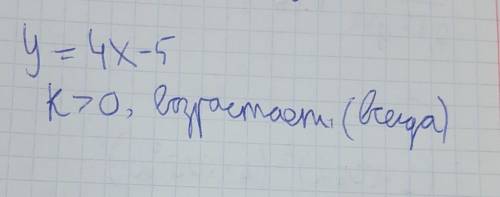 y = 4x - 5
k > 0, возрастает. (всегда)